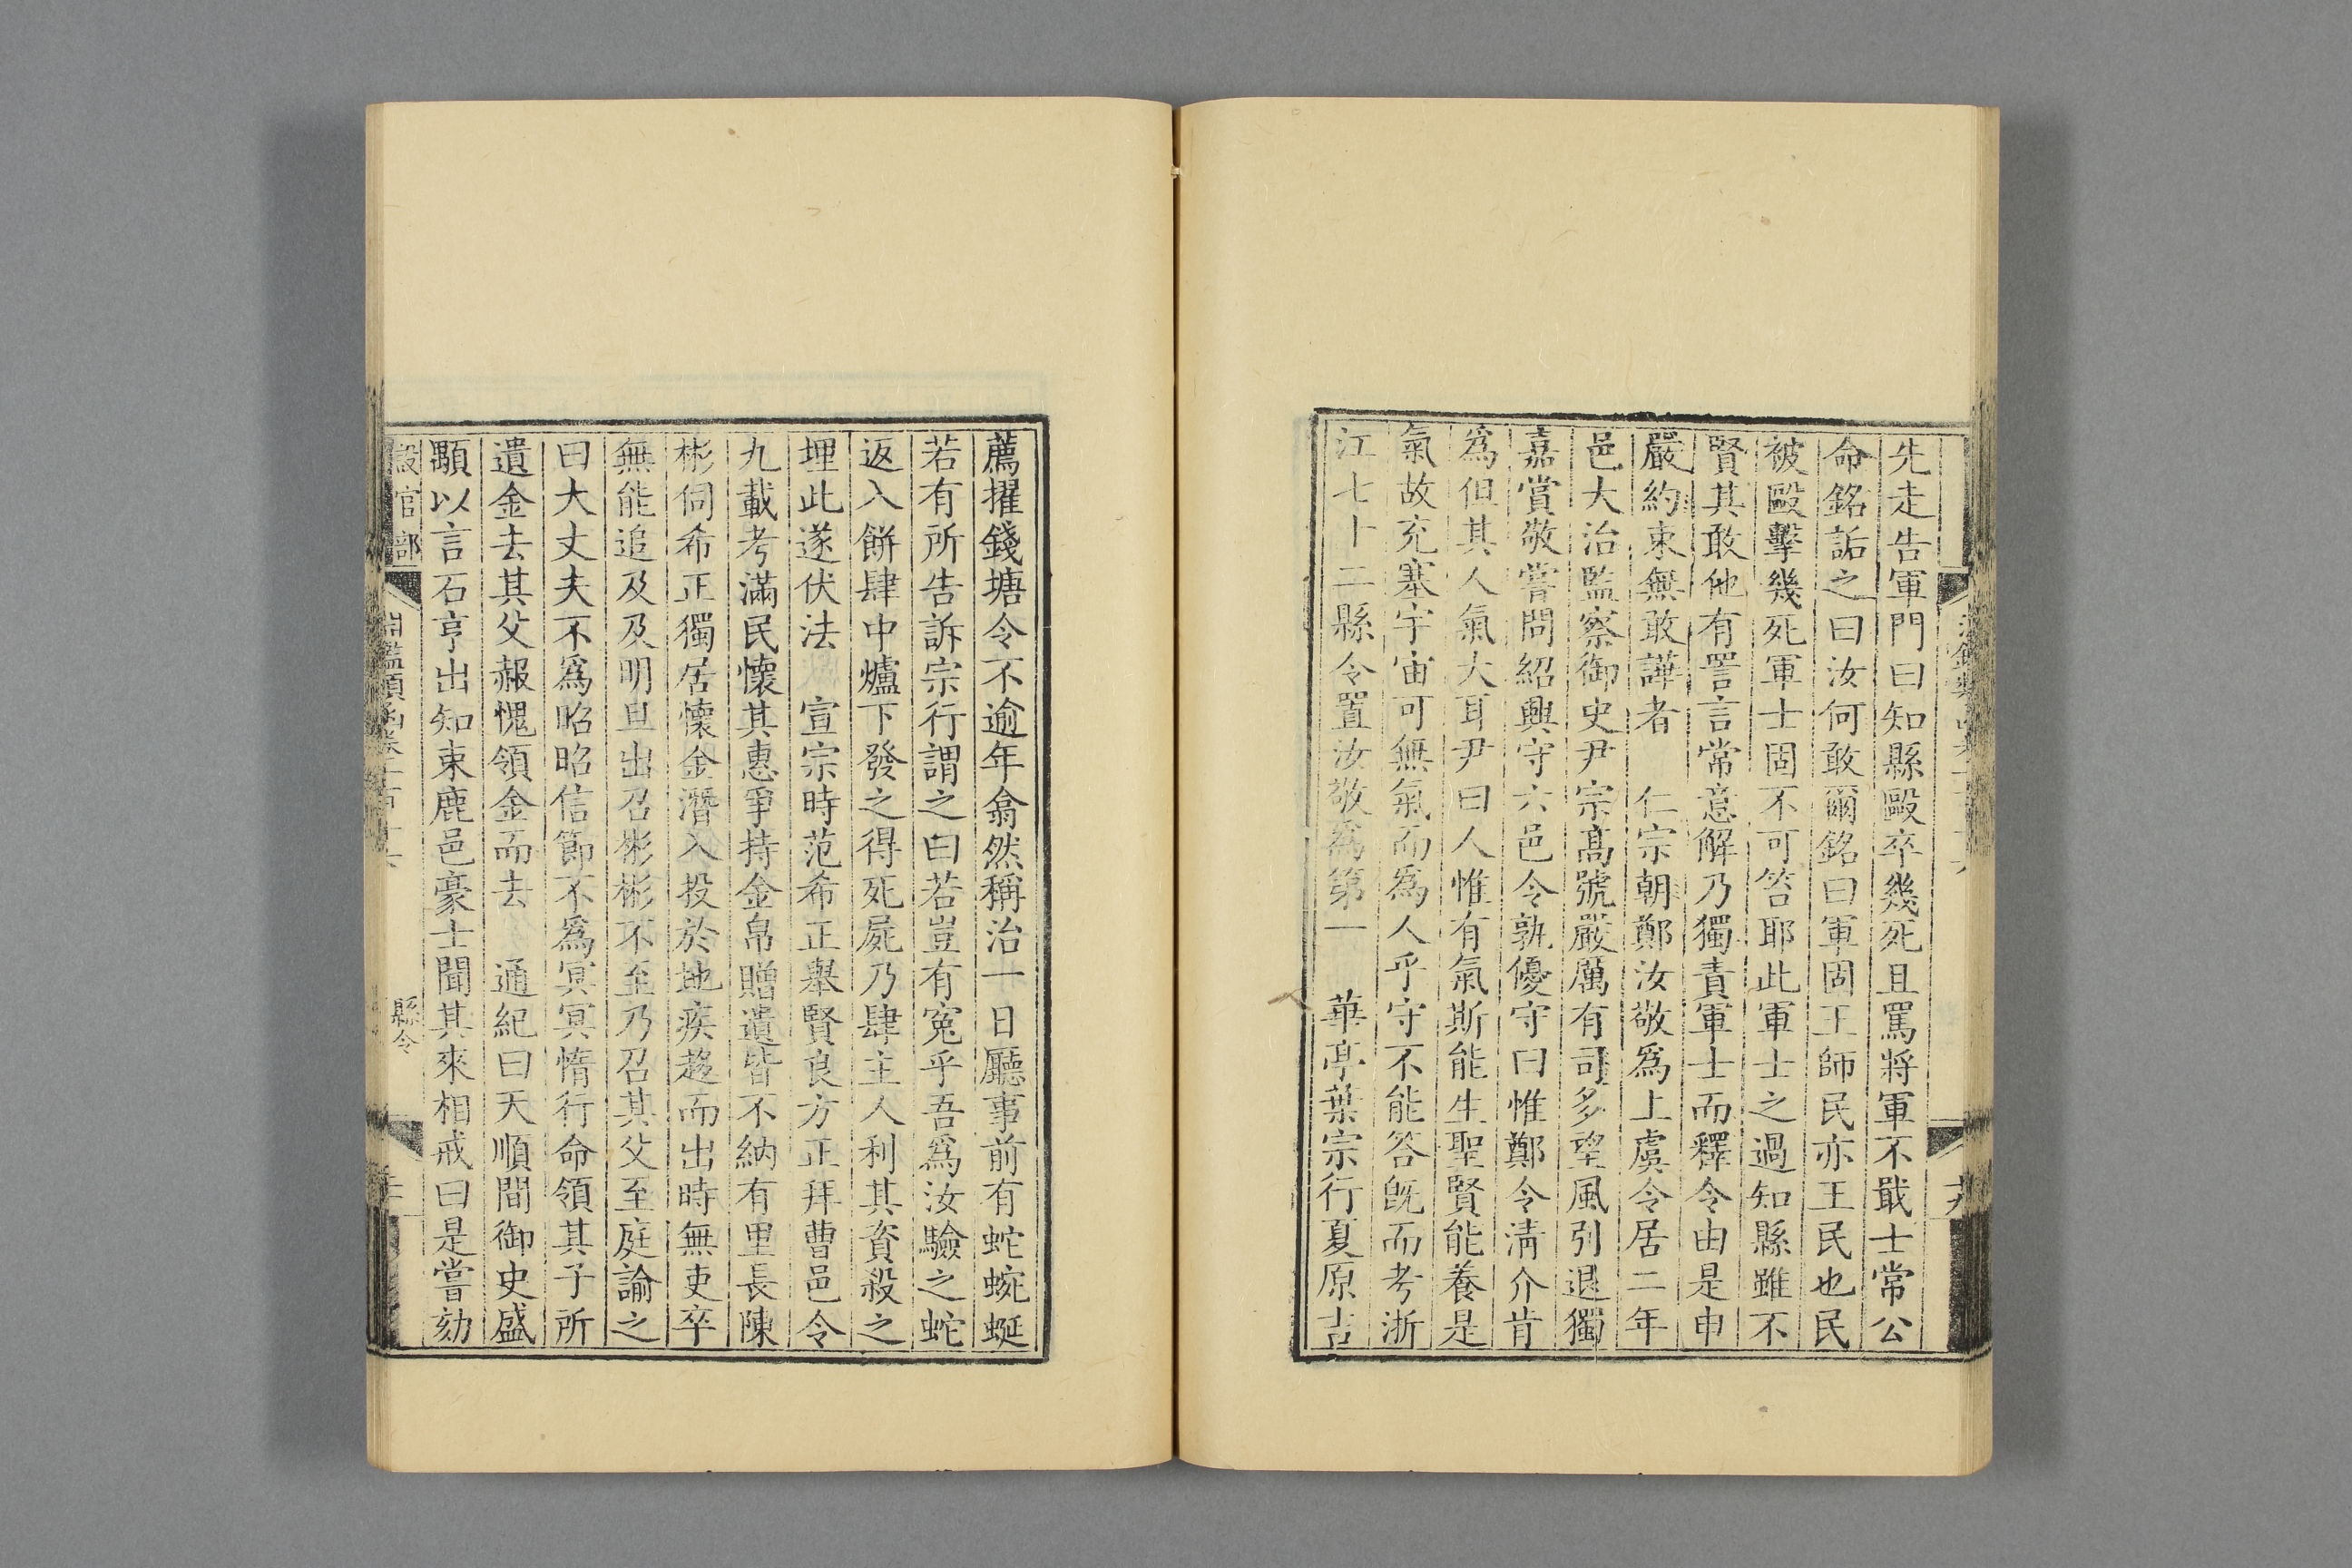 先走告軍門曰知縣毆卒幾死且罵將軍不戢士常公
命銘詬之曰汝何敢爾銘曰軍固王師民亦王民也民
被毆擊幾死軍士固不可笞耶此軍士之過知縣雖不
賢其敢他有詈言常意解乃獨責軍士而釋令由是申
嚴約束無敢譁者　仁宗朝鄭汝敬爲上虞令居二年
邑大治監察御史尹宗高號嚴厲有司多望風引退獨
嘉賞敬嘗問紹興守六邑令孰優守曰惟鄭令淸介肯
爲但其人氣大耳尹曰人惟有氣斯能生聖賢能養是
氣故充塞宇宙可無氣而爲人乎守不能答旣而考浙
江七十二縣令置汝敬爲第一　華亭葉宗行夏原吉
薦擢錢塘令不逾年翕然稱治一日廳事前有蛇蜿蜒
若有所告訴宗行謂之曰若豈有冤乎吾爲汝驗之蛇
返入餅肆中爐下發之得死屍乃肆主人利其資殺之
埋此遂伏法　宣宗時范希正舉賢良方正拜曹邑令
九載考滿民懷其惠爭持金帛贈遺皆不納有里長陳
彬伺希正獨居懷金潛入投於地疾趨而出時無吏卒
無能追及及明旦出召彬彬不至乃召其父至庭諭之
曰大丈夫不爲昭昭信節不爲冥冥惰行命領其子所
遺金去其父赧愧領金而去　通紀曰天順間御史盛
顒以言石亨出知束鹿邑豪士聞其來相戒曰是嘗劾
設官部
淵鑑類函卷一百十六
縣令